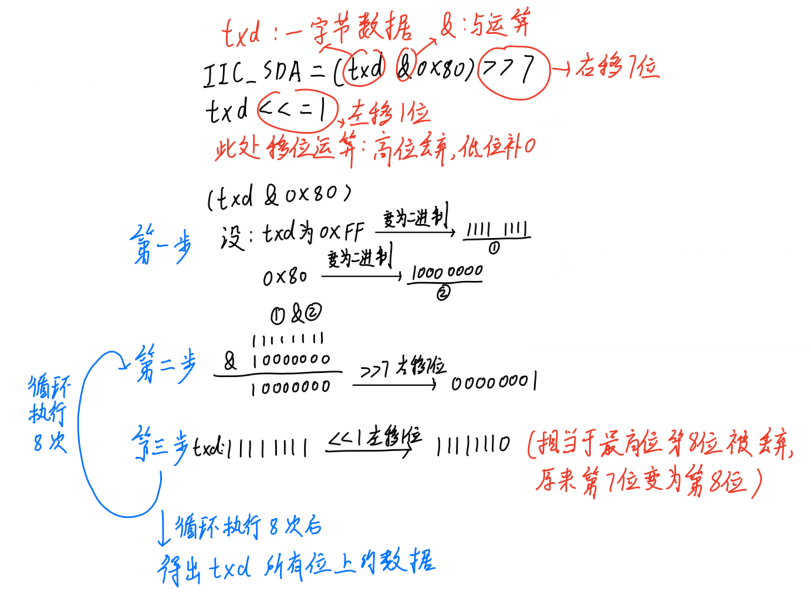 txd:一字节数据 &:与运算
IIC_SDA=(txd &0x80)>>7 →右移7位
txd <<=1 左移1位
此处移位运算:高位丢弃,低位补0
(txd & 0x80)
第一步 设:txd为0xFF 变为二进制 1111 1111
①
0x80 变为二进制 1000 0000
②
①&②
11111111
第二步 & 10000000
10000000 >>7 右移7位 00000001
循环
执行
8次
第三步 txd:11111111 <<1左移1位 11111110 (相当于最高位第8位被丢弃,
原来第7位变为第8位)
循环执行8次后
得出txd 所有位上的数据